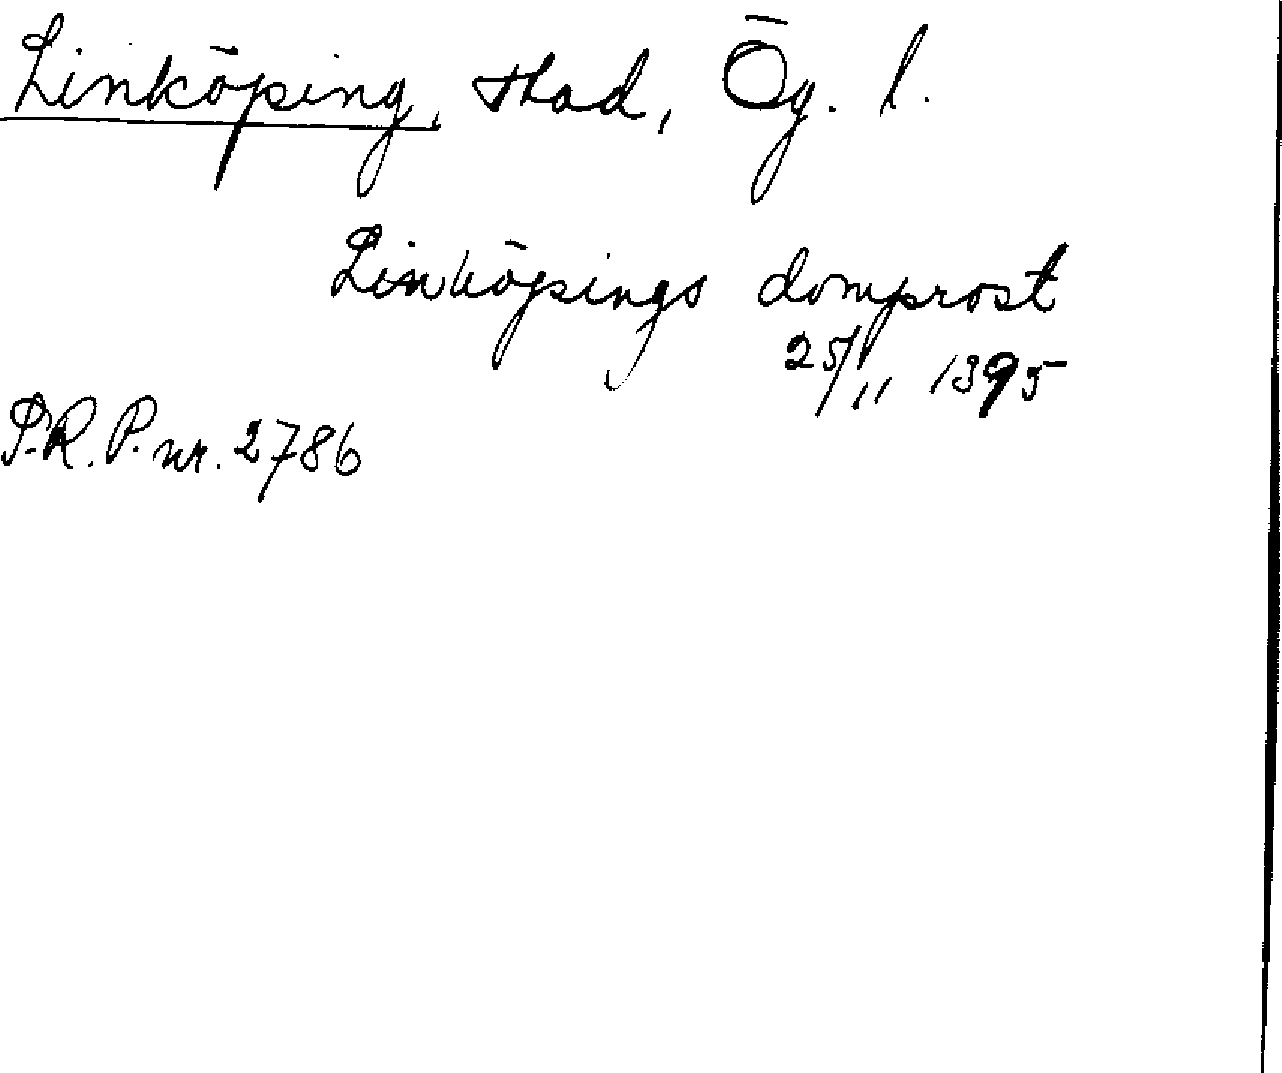 Linköping, stad, Ög. l.
Linköpings domprost
25/11 1395
P.R.P. nr. 2786